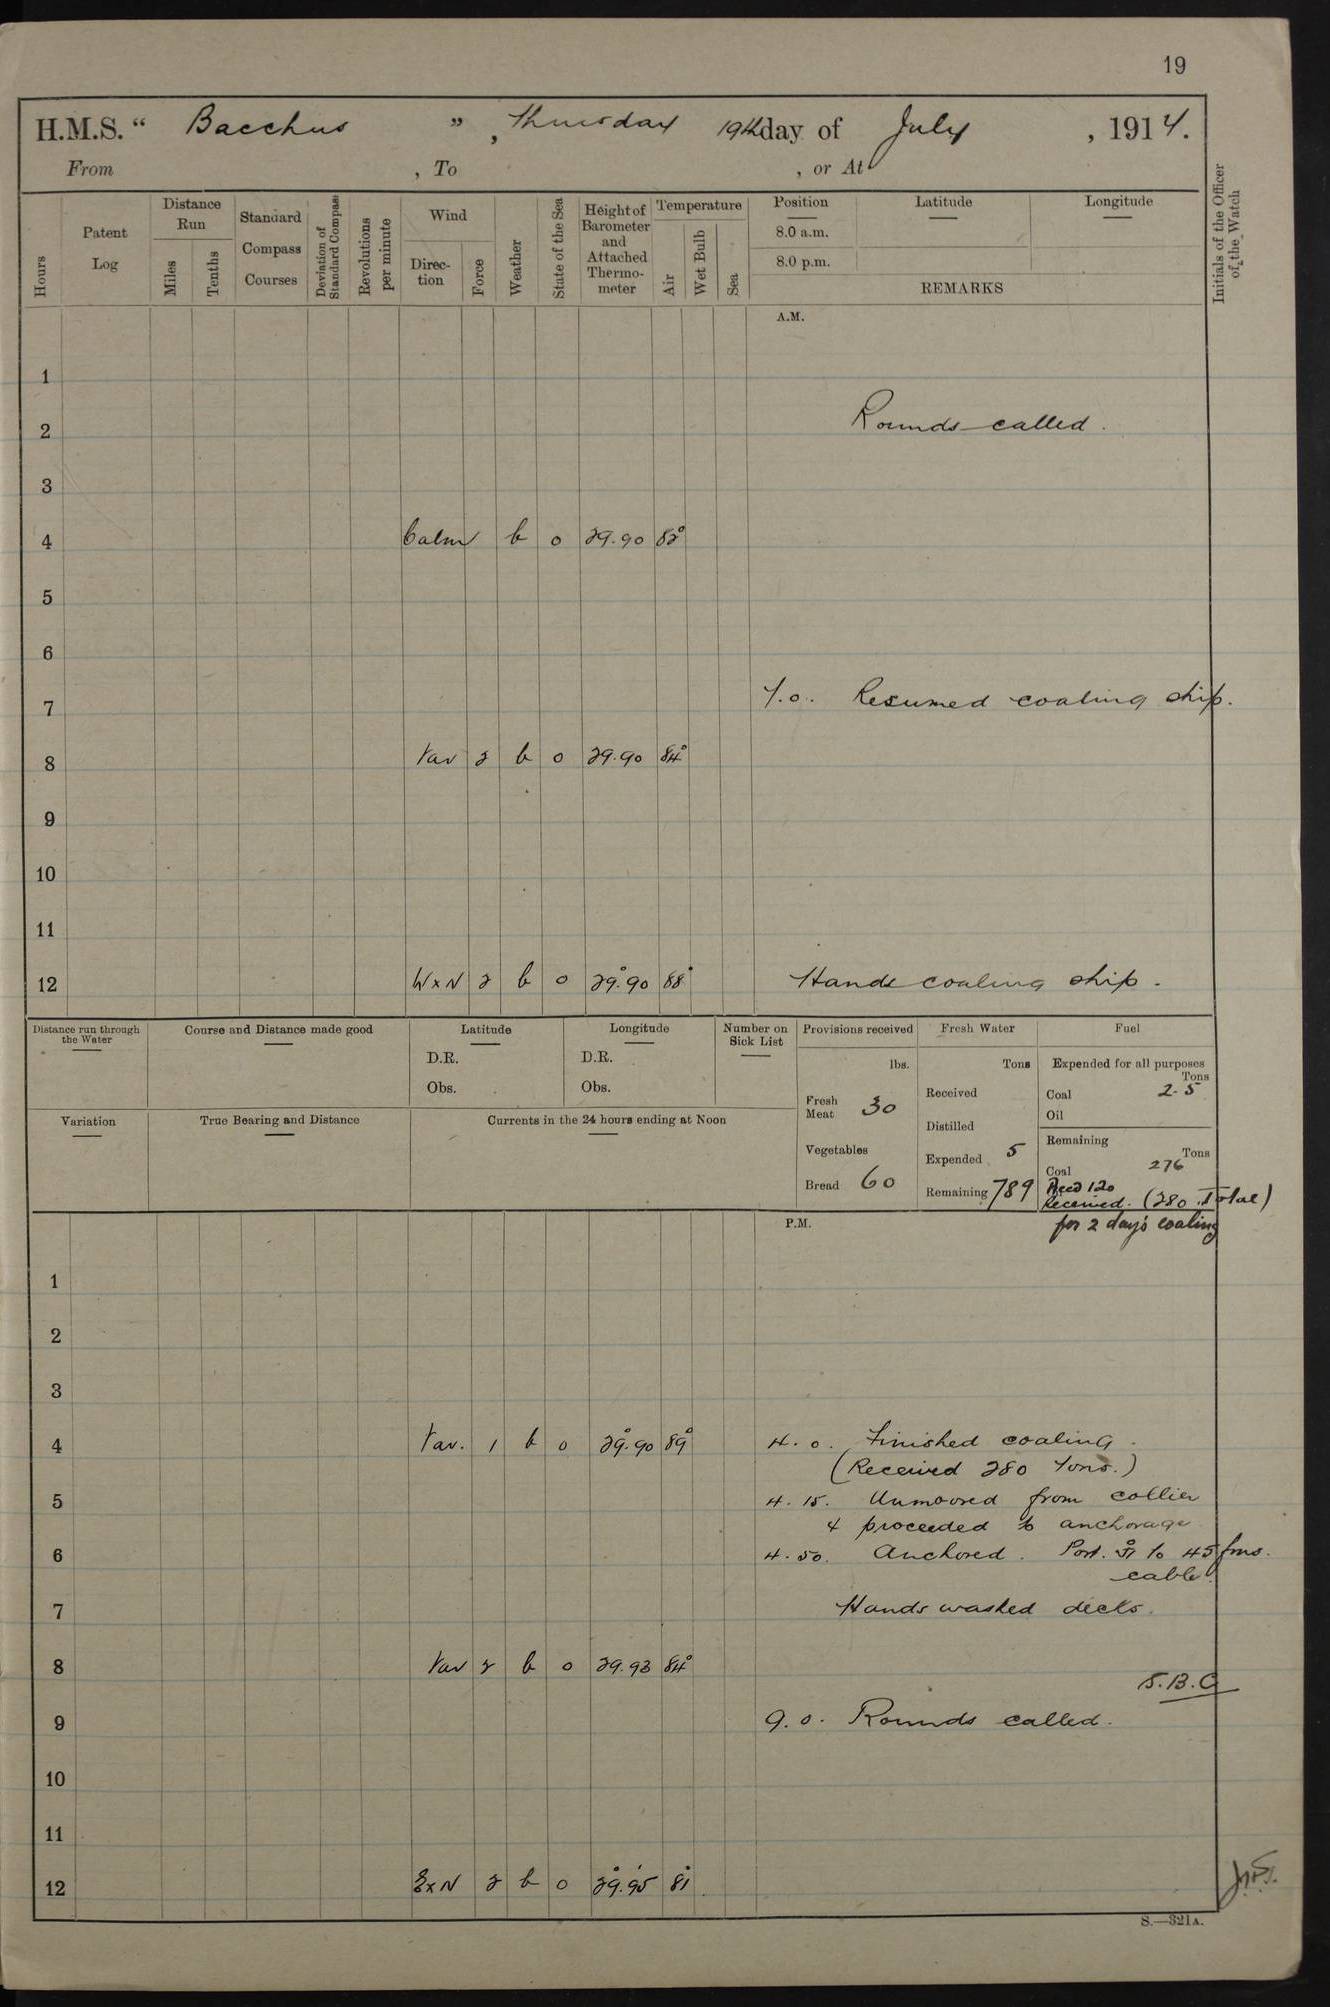 19
H.M.S. " Bacchus ", Thursday 19th day of July, 1917.
From , To , or At
Hours
Patent Log
Distance Run
Miles
Tenths
Standard Compass Courses
Deviation of Standard Compass
Revolutions per minute
Wind
Direction
Force
Weather
State of the Sea
Height of Barometer and Attached Thermometer
Temperature
Air
Wet Bulb
Sea
Position
8.0 a.m.
8.0 p.m.
Latitude
Longitude
REMARKS
Initials of the Officer of the Watch
A.M.
1
2 Rounds called.
3
4 Calm b 0 29.90 82°
5
6
7 7.0. Resumed coaling ship.
8 Var 2 b 0 29.90 84°
9
10
11
12 W x N 2 b 0 29.90 88° Hands coaling ship.
Distance run through the Water
Course and Distance made good
Latitude
D.R.
Obs.
Longitude
D.R.
Obs.
Number on Sick List
Provisions received
lbs.
Fresh Meat 30
Vegetables
Bread 60
Fresh Water
Tons
Received
Distilled
Expended 5
Remaining 789
Fuel
Expended for all purposes
Tons
Coal 2.5
Oil
Remaining
Tons
Coal 276
Recd 120
Received. (280 Total)
for 2 day's coaling
Variation
True Bearing and Distance
Currents in the 24 hours ending at Noon
P.M.
1
2
3
4 Var. 1 b 0 29.90 89° 4.0. Finished coaling.
(Received 280 Tons.)
5 4.15. Unmoored from collier
& proceeded to anchorage
6 4.50. Anchored. Port. to 45 fms.
cable.
7 Hands washed decks.
8 Var 2 b 0 29.93 84°
S.B.C
9 9.0. Rounds called.
10
11
12 E x N 2 b 0 29.95 81°
S.—321A.